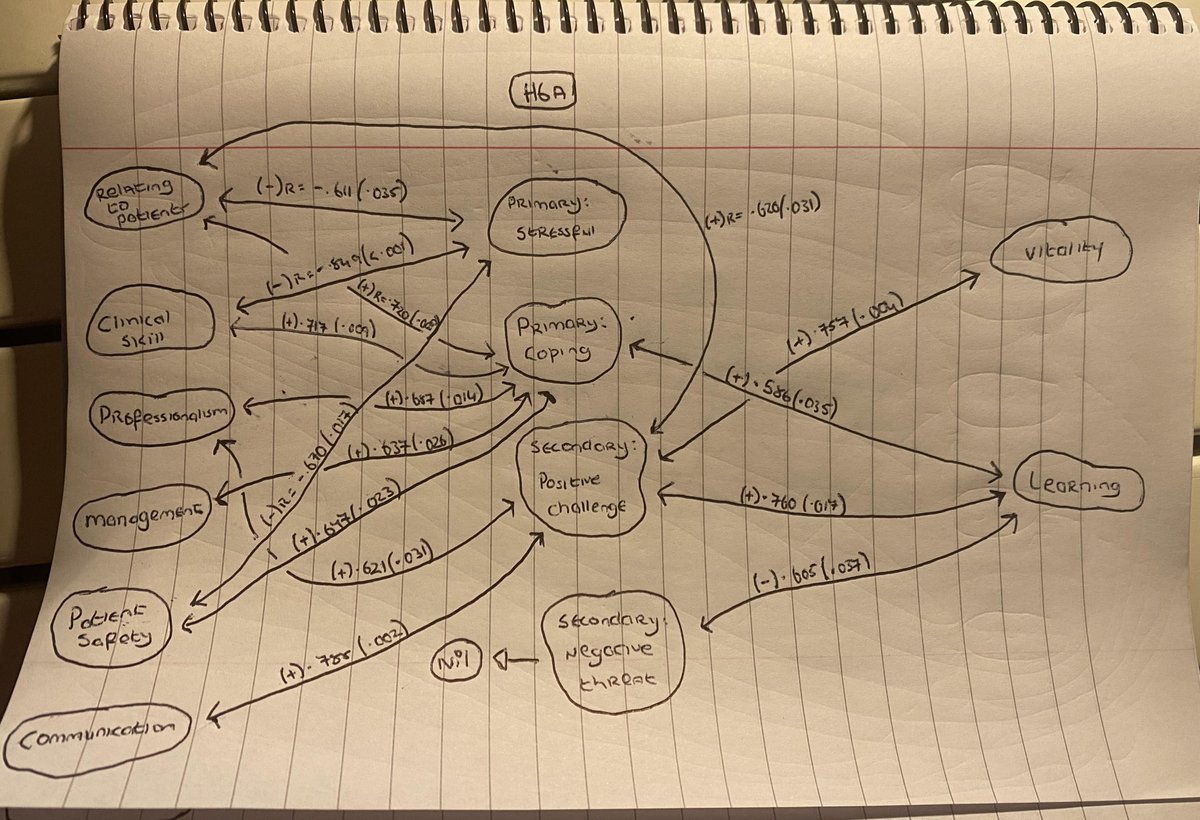 H6A
Relating
to
patients
(-)R= -.611(.035)
PRIMARY:
STRESSFUL
(+)R= .620(.031)
Vitality
(-)R= -.849(<.001)
(+)R=.720(
Clinical
skill
(+).717(.009)
PRIMARY:
Coping
(+).757(.004)
(+).586(.035)
Professionalism
(+).687(.014)
(+).637(.026)
(-)R= -.670(.017)
Secondary:
Positive
challenge
Learning
(+).760(.017)
management
(+).647(.023)
(+).621(.031)
(-).605(.037)
Patient
Safety
Secondary:
Negative
threat
Nil
(.002)
Communication